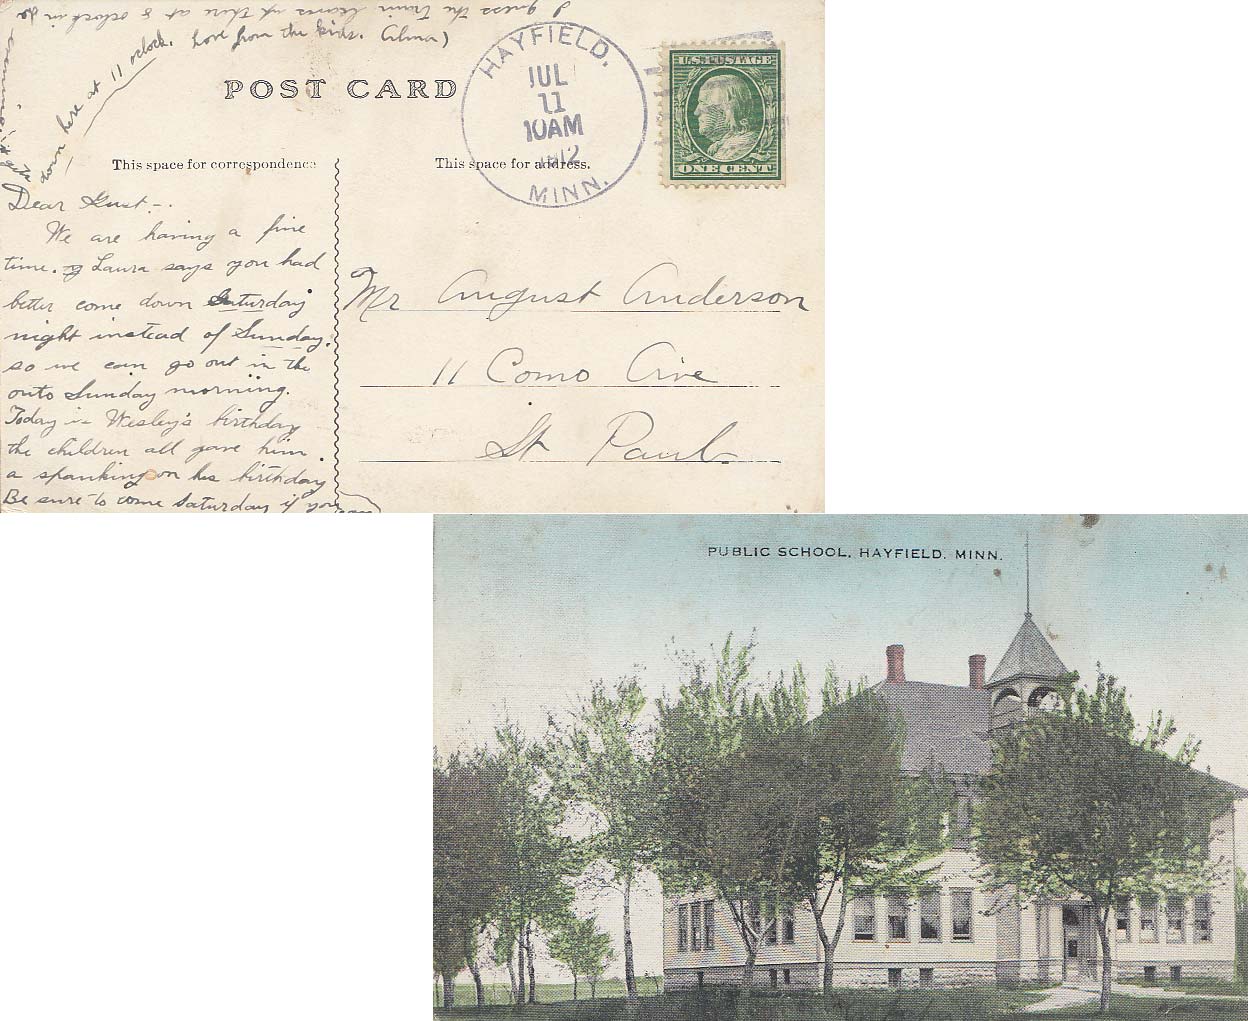 I guess the train leaves up there at 8 oclock in the
evening & gets
down here at 11 oclock.
Love from the kids. Alma)
POST CARD
HAYFIELD.
JUL
11
10AM
1912
MINN.
U.S. POSTAGE
ONE CENT
This space for correspondence
This space for address.
Dear Gust -.
We are having a fine
time. Laura says you had
better come down Saturday
night instead of Sunday.
so we can go out in the
auto Sunday morning.
Today is Wesley's birthday
the children all gave him
a spanking on his birthday
Be sure to come Saturday if you
can
Mr August Anderson
11 Como Ave
St Paul
PUBLIC SCHOOL, HAYFIELD. MINN.